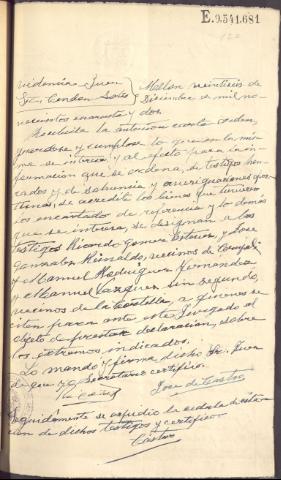 E.9.541.681
120
videncia Juez
Sr. Cendon Soto
Mellon veintiseis de
Diciembre de mil no-
vecientos cuarenta y dos.
Recibida la anterior carta orden,
guardese y cumplase lo que en la mis-
ma se interesa y al efecto para la in-
formacion que se ordena, de testigos hon-
rados y de solvencia y averiguaciones opor-
tunas, se acredite los bienes que tuviere
los encartado de referencia y lo demas
que se interesa, se designan a los
testigos Ricardo Gomez y Jose
Gonzalez Reinaldo, vecinos de
y Manuel Rodriguez Fernandez
y Manuel Vazquez, sin segundo,
vecinos de la a quienes se
citen para ante este Juzgado al
objeto de prestar declaracion, sobre
los extremos indicados.
Lo mando y firma dicho Sr. Juez
de que yo Secretario certifico.
Jose de Castro
Seguidamente se expidio la cedula de citar
cion de dichos testigos y certifico.
Castro